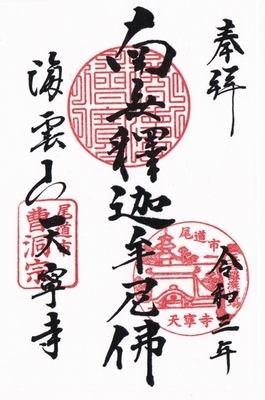 奉拝
令和三年
南無釋迦牟尼佛
海雲山天寧寺
尾道市
曹洞宗
尾道市
天寧寺